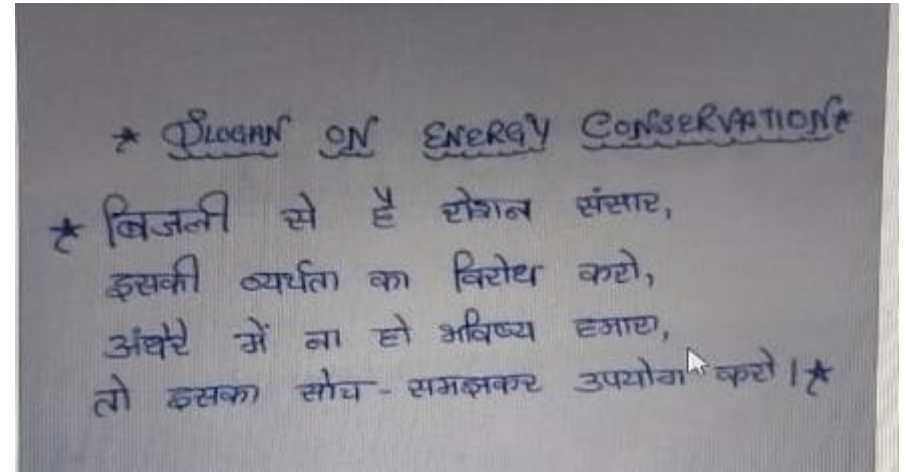 ★ SLOGAN ON ENERGY CONSERVATION ★
★ बिजली से है रोशन संसार,
इसकी व्यर्थता का विरोध करो,
अंधेरे में ना हो भविष्य हमारा,
तो इसका सोच - समझकर उपयोग करो । ★